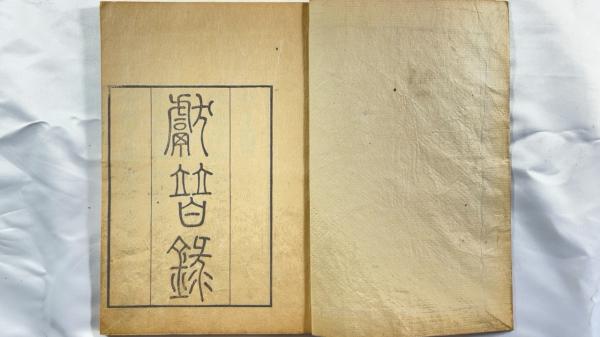 獻替錄